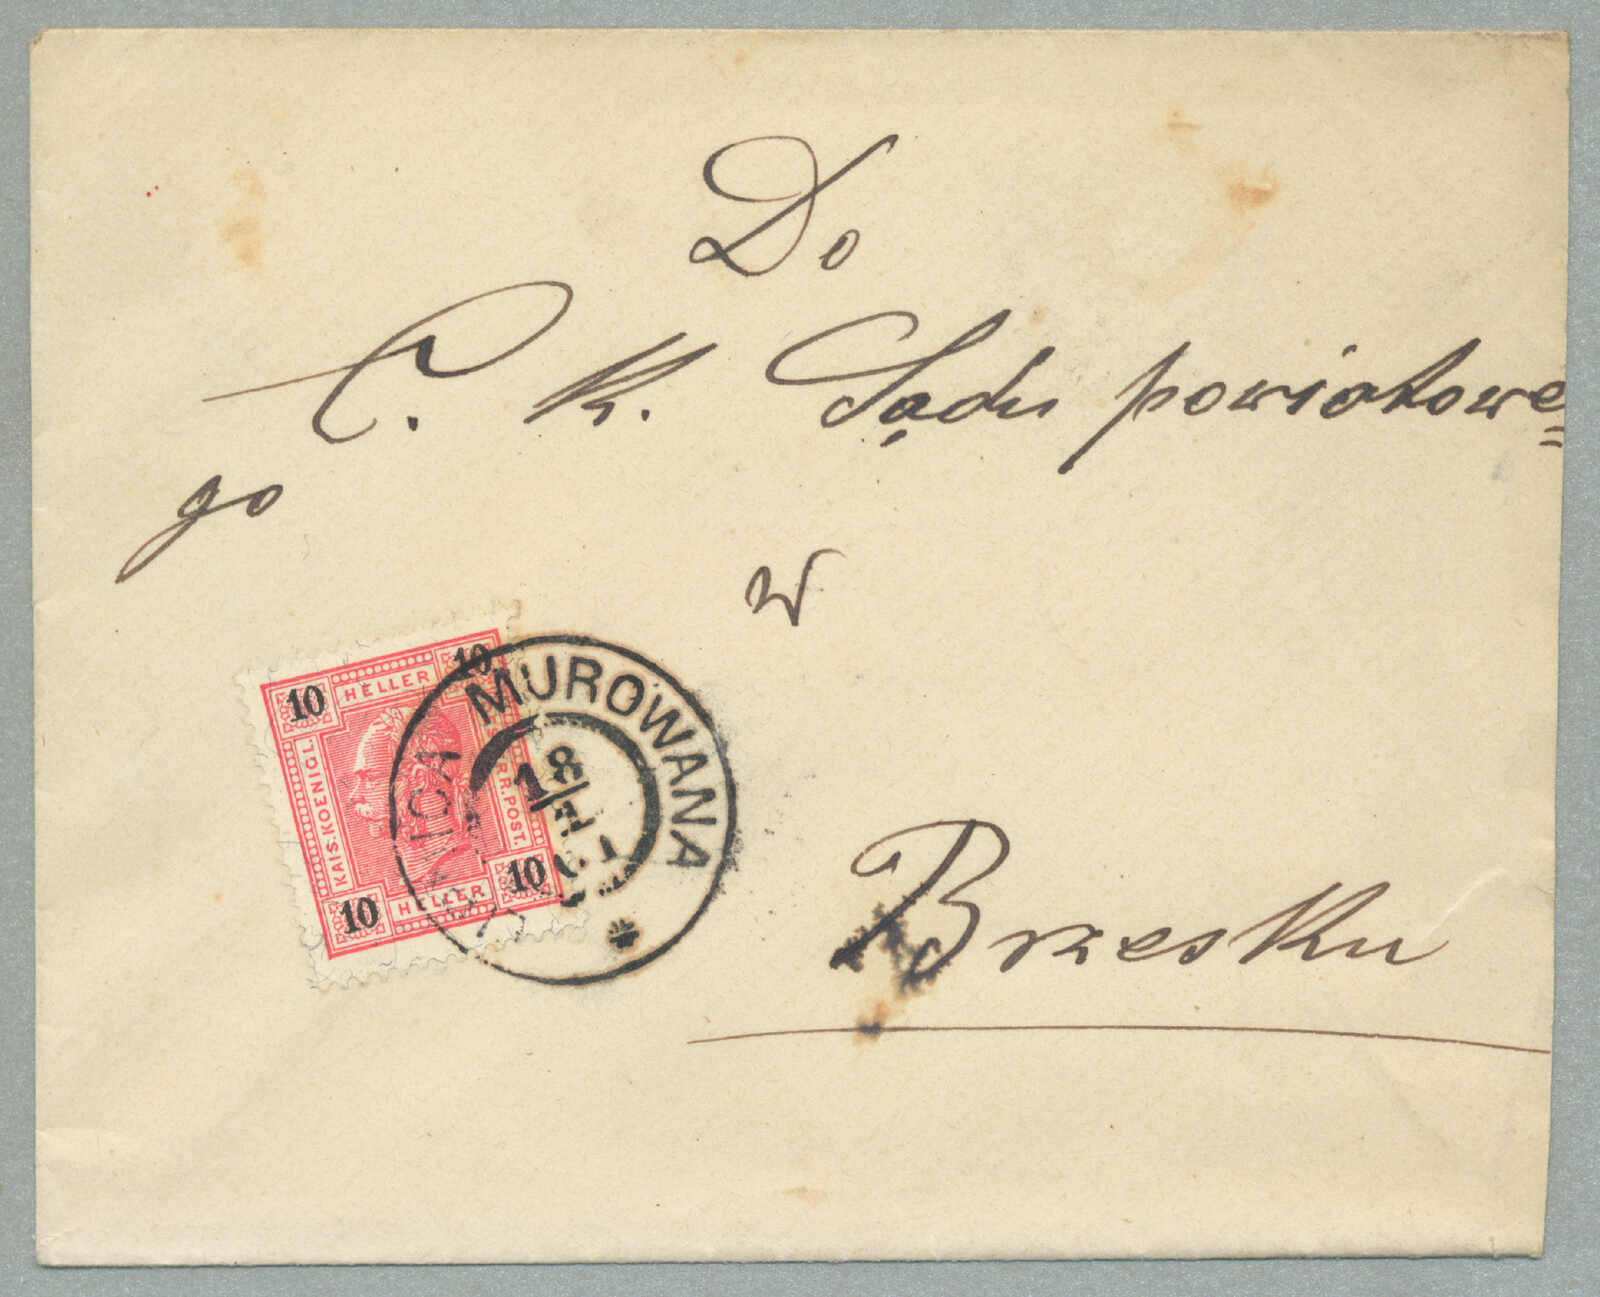 Do
C. K. Sądu powiatowe=
go
w
Brzesku
10 HELLER 10
KAIS. KOENIGL.
R.R. POST.
10 HELLER 10
MUROWANA
18